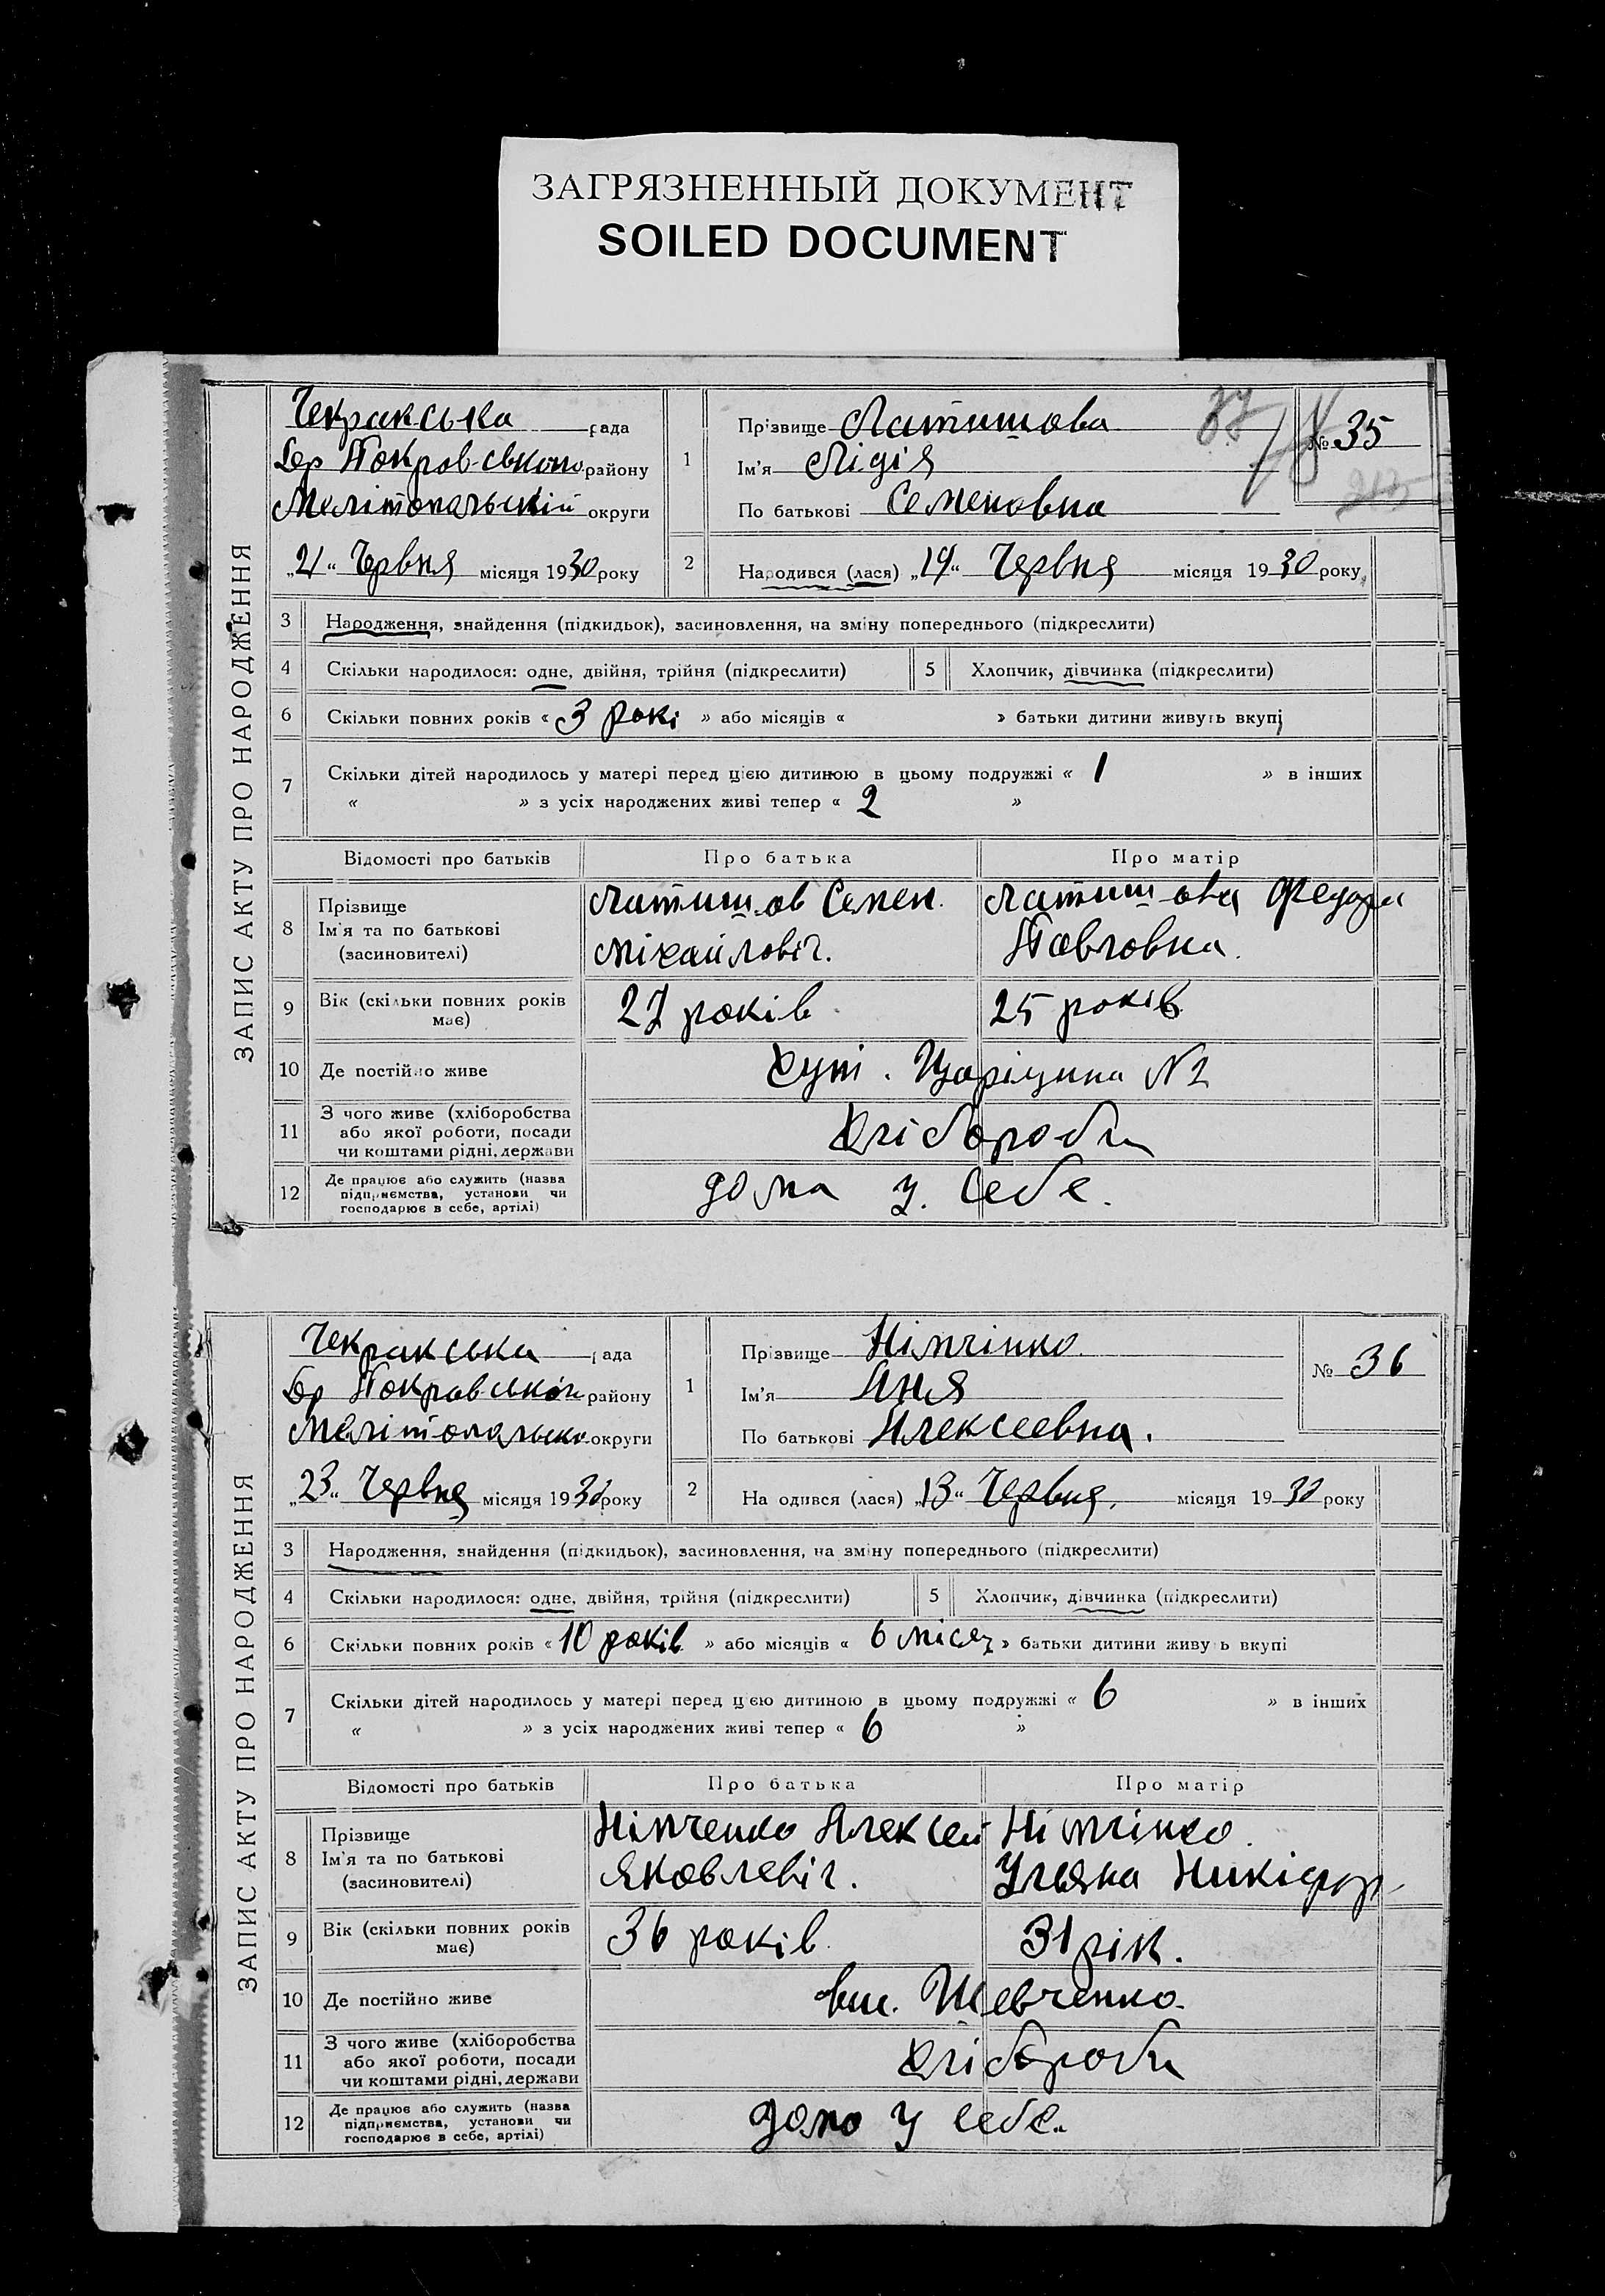 ЗАГРЯЗНЕННЫЙ ДОКУМЕНТ
SOILED DOCUMENT
ЗАПИС АКТУ ПРО НАРОДЖЕННЯ
Чекракська рада
Бер Покровського району
Мелітопольській округи
„21“ Червня місяця 1930 року
1
Прізвище Латишова
Ім'я Лідія
По батькові Семеновна
37
№ 35
213
2 Народився (лася) „19“ Червня місяця 1930 року
3 Народження, знайдення (підкидьок), засиновлення, на зміну попереднього (підкреслити)
4 Скільки народилося: одне, двійня, трійня (підкреслити) 5 Хлопчик, дівчинка (підкреслити)
6 Скільки повних років « 3 рокі » або місяців « » батьки дитини живуть вкупі
7 Скільки дітей народилось у матері перед цією дитиною в цьому подружжі « 1 » в інших
« » з усіх народжених живі тепер « 2 »
Відомості про батьків Про батька Про матір
8 Прізвище
Ім'я та по батькові
(засиновителі)
Латишов Семен
Міхайловіч.
Латишова Федора
Павловна.
9 Вік (скільки повних років має) 27 років 25 років
10 Де постійно живе Хут. Царіцина №2
11 З чого живе (хліборобства
або якої роботи, посади
чи коштами рідні, держави
Хлібороби
12 Де працює або служить (назва
підприємства, установи чи
господарює в себе, артілі)
дома у. себе.
ЗАПИС АКТУ ПРО НАРОДЖЕННЯ
Чекракська рада
Бер Покровського району
Мелітопольско округи
„23“ Червня місяця 1930 року
1
Прізвище Німчінко.
Ім'я Аня
По батькові Алексеевна.
№ 36
2 На одився (лася) „13“ Червня. місяця 1930 року
3 Народження, знайдення (підкидьок), засиновлення, на зміну попереднього (підкреслити)
4 Скільки народилося: одне, двійня, трійня (підкреслити) 5 Хлопчик, дівчинка (підкреслити)
6 Скільки повних років « 10 років » або місяців « 6 місяц » батьки дитини живу ь вкупі
7 Скільки дітей народилось у матері перед цєю дитиною в цьому подружжі « 6 » в інших
« » з усіх народжених живі тепер « 6 »
Відомості про батьків Про батька Про матір
8 Прізвище
Ім'я та по батькові
(засиновителі)
Німченко Алексей
Яковлевіч.
Німчінко.
Ульяна Никіфор
9 Вік (скільки повних років має) 36 років 31 рік.
10 Де постійно живе вис. Шевченко.
11 З чого живе (хліборобства
або якої роботи, посади
чи коштами рідні, держави
Хлібороби
12 Де працює або служить (назва
підприємства, установи чи
господарює в себе, артілі)
домо у себе.